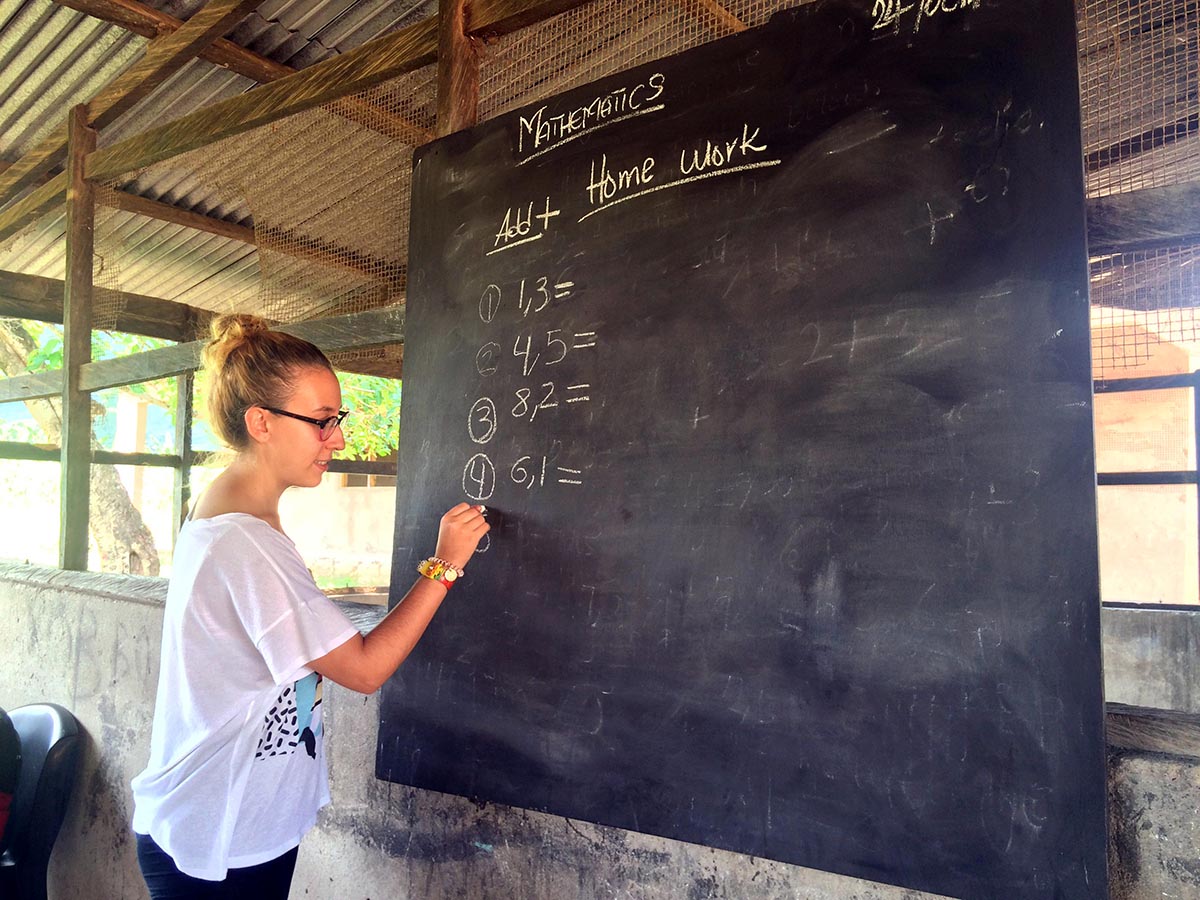 MATHEMATICS
Home Work
Add +
① 1,3 =
② 4,5 =
③ 8,2 =
④ 6,1 =